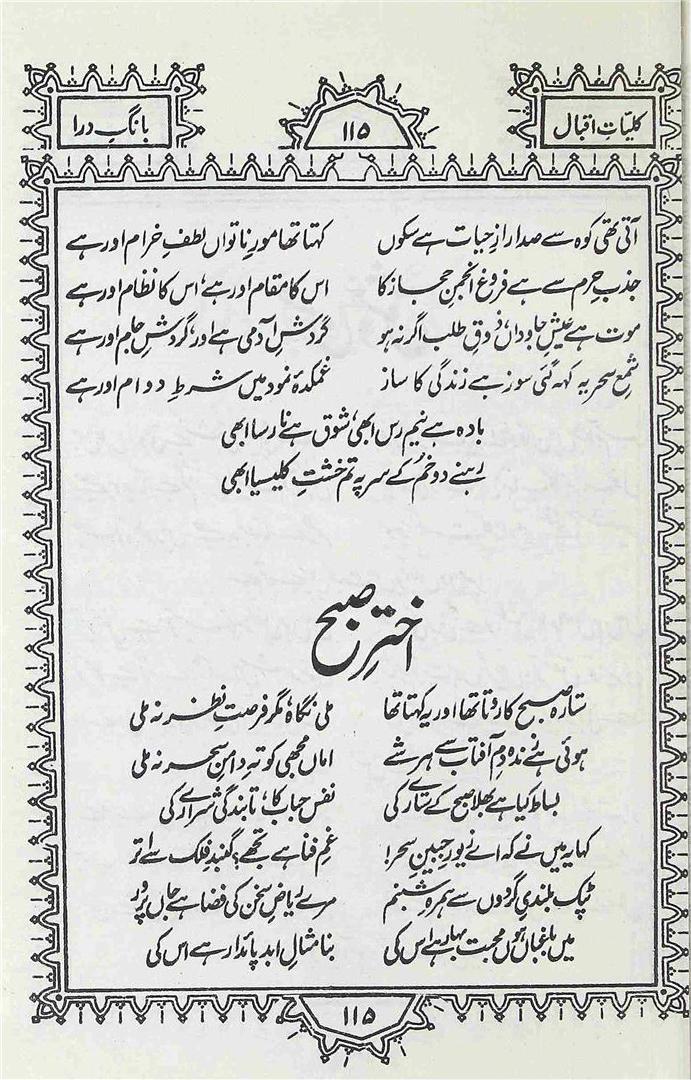 کلیاتِ اقبال ۱۱۵ بانگِ درا
آتی تھی کوہ سے صدا راز حیات ہے سکوں کہتا تھا مورِ ناتواں لطفِ خرام اور ہے
جذبِ حرم سے ہے فروغ انجمنِ حجاز کا اس کا مقام اور ہے، اس کا نظام اور ہے
موت ہے عیشِ جاوداں، ذوقِ طلب اگر نہ ہو گردشِ آدمی ہے اور، گردشِ جام اور ہے
شمعِ سحر یہ کہہ گئی سوز ہے زندگی کا ساز غمکدۂ نمود میں شرطِ دوام اور ہے
بادہ ہے نیم رس ابھی، شوق ہے نارسا ابھی
رہنے دو خُم کے سر پہ تم خشتِ کلیسیا ابھی
اخترِ صبح
ستارہ صبح کا روتا تھا اور یہ کہتا تھا ملی نگاہ مگر فرصتِ نظر نہ ملی
ہوئی ہے زندہ دمِ آفتاب سے ہر شے اماں مجھی کو تہِ دامنِ سحر نہ ملی
بساط کیا ہے بھلا صبح کے ستارے کی نفس حباب کا، تابندگی شرارے کی
کہا یہ میں نے کہ اے زیورِ جبینِ سحر! غمِ فنا ہے تجھے؟ گنبدِ فلک سے اتر
ٹپک بلندیِ گردوں سے ہمرہِ شبنم مرے ریاضِ سخن کی فضا ہے جاں پرور
میں باغباں ہوں محبت بہار ہے اس کی بنا مثالِ ابد پائدار ہے اس کی
۱۱۵